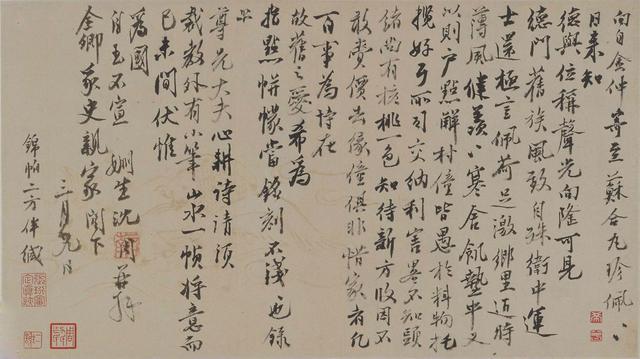 向自金仲寄至蘇合九珍佩〻
日來知
德與位稱聲光向隆可見
德門舊族風致自殊衛中運
士還極言佩荷足激鄉里近時
薄風健羨〻寒舍飢墊中又
以則户點解朴僮皆愚於料物托
攬好另所司交納利害畧不知頭
緒尚有核桃一色知待新方收因不
敢費價去緣僮俱非惜家者凡
百事為恃在
故舊之愛希為
指點帡幪當錄刻不淺也錄
上
尊先大夫心耕詩請須
裁教外有小筆山水一幀將意而
已未間伏惟
為國
自玉不宣 姻生沈周再拜
全卿冢史親家閣下
三月九日
錦帕二方伴緘